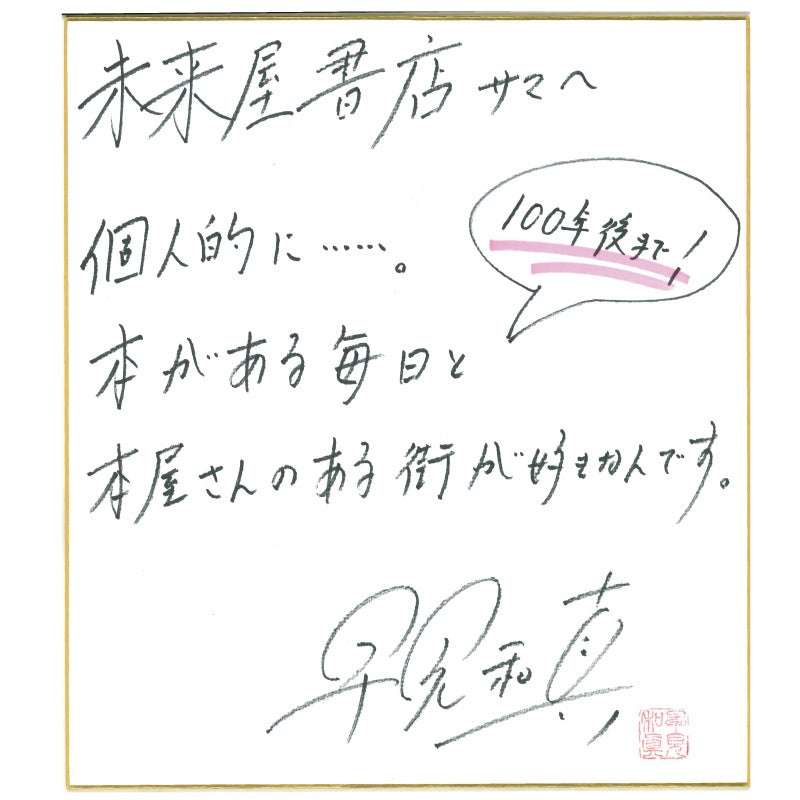 未来屋書店サマへ
100年後まで!
個人的に……。
本がある毎日と
本屋さんのある街が好きなんです。
早見和真
早見和真